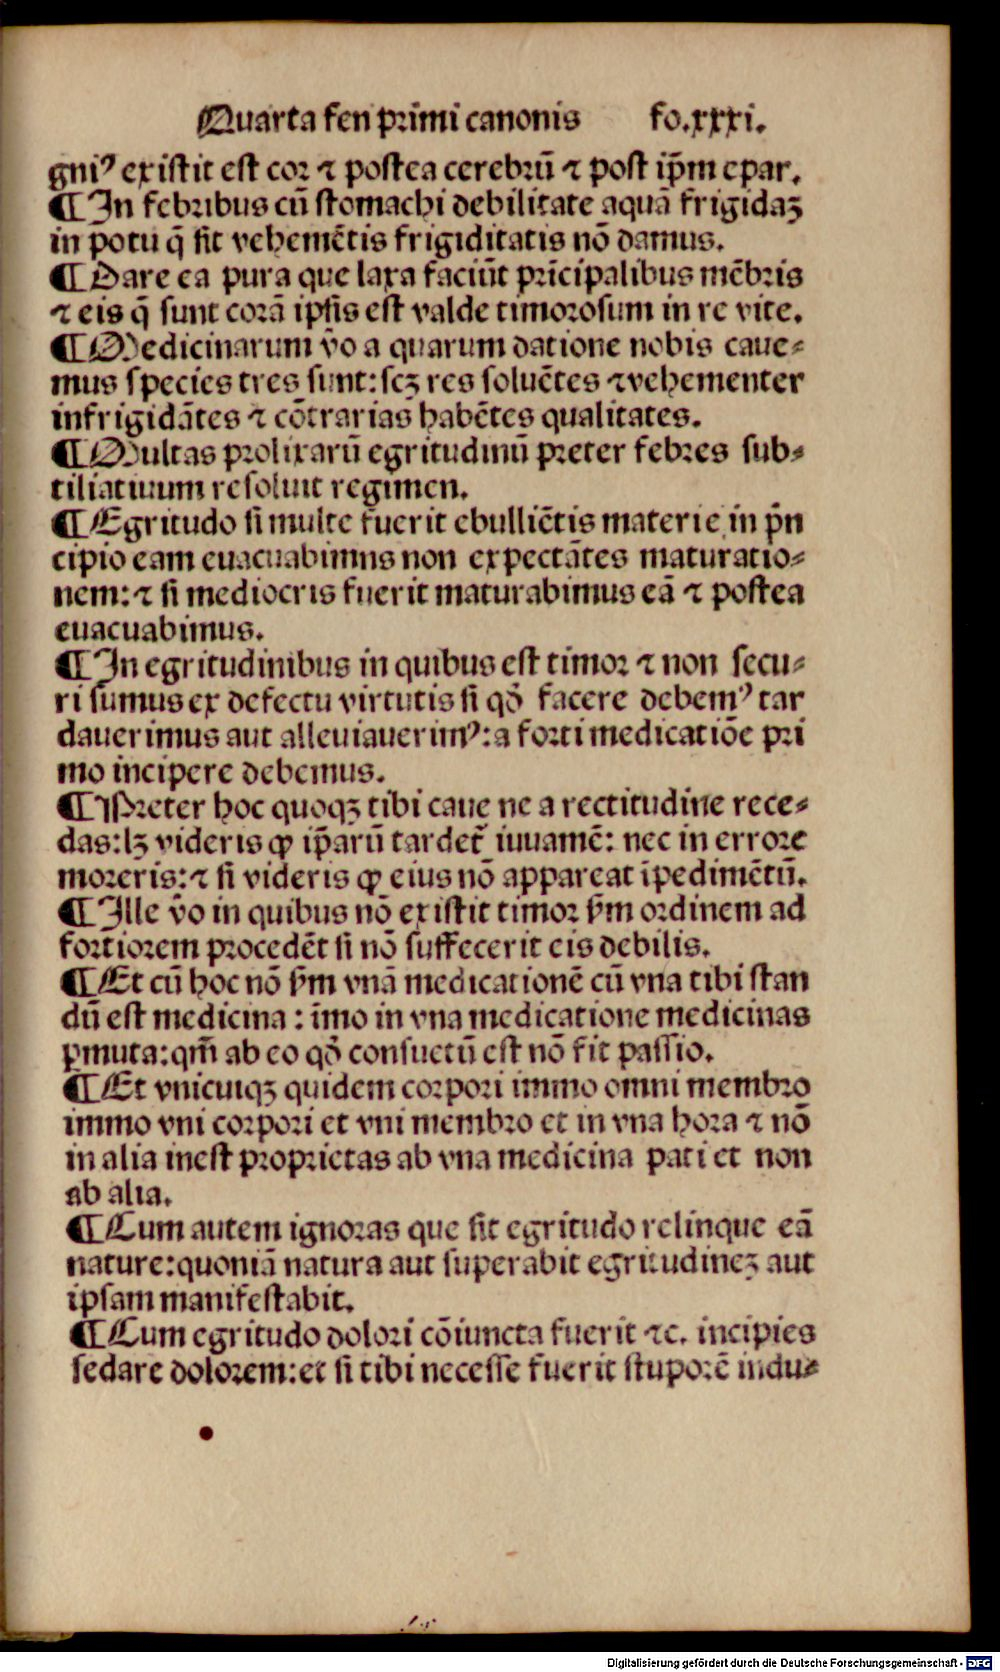 Quarta fen primi canonis fo.xxxi.
gniꝰ existit est cor ⁊ postea cerebrū ⁊ post ip̄m epar.
¶ In febribus cū stomachi debilitate aquā frigidaꝫ
in potu q̄ sit vehemētis frigiditatis nō damus.
¶ Dare ea pura que laxa faciūt prīcipalibus mēbris
⁊ eis q̄ sunt corā ipsis est valde timorosum in re vite.
¶ Medicinarum v̄o a quarum datione nobis caue⸗
mus species tres sunt: scꝫ res soluētes ⁊ vehementer
infrigidātes ⁊ cōtrarias habētes qualitates.
¶ Multas prolixarū egritudinū preter febres sub⸗
tiliatiuum resoluit regimen.
¶ Egritudo si multe fuerit ebulliētis materie in p̄n
cipio eam euacuabimns non expectātes maturatio⸗
nem: ⁊ si mediocris fuerit maturabimus eā ⁊ postea
euacuabimus.
¶ In egritudinibus in quibus est timor ⁊ non secu⸗
ri sumus ex defectu virtutis si qō facere debemꝰ tar
dauerimus aut alleuiauerimꝰ: a forti medicatiōe pri
mo incipere debemus.
¶ Preter hoc quoqꝫ tibi caue ne a rectitudine rece⸗
das: lꝫ videris ꝙ ip̄arū tardet̄ iuuamē: nec in errore
moreris: ⁊ si videris ꝙ eius nō appareat īpedimētū.
¶ Ille v̄o in quibus nō existit timor s̄m ordinem ad
fortiorem procedēt si nō suffecerit eis debilis.
¶ Et cū hoc nō s̄m vnā medicationē cū vna tibi stan
dū est medicina: īmo in vna medicatione medicinas
ꝑmuta: qm̄ ab eo qō consuetū est nō fit passio.
¶ Et vnicuiqꝫ quidem corpori immo omni membro
immo vni corpori et vni membro et in vna hora ⁊ nō
in alia inest proprietas ab vna medicina pati et non
ab alia.
¶ Cum autem ignoras que sit egritudo relinque eā
nature: quoniā natura aut superabit egritudineꝫ aut
ipsam manifestabit.
¶ Cum egritudo dolori cōiuncta fuerit ⁊c. incipies
sedare dolorem: et si tibi necesse fuerit stuporē indu⸗
Digitalisierung gefördert durch die Deutsche Forschungsgemeinschaft - DFG